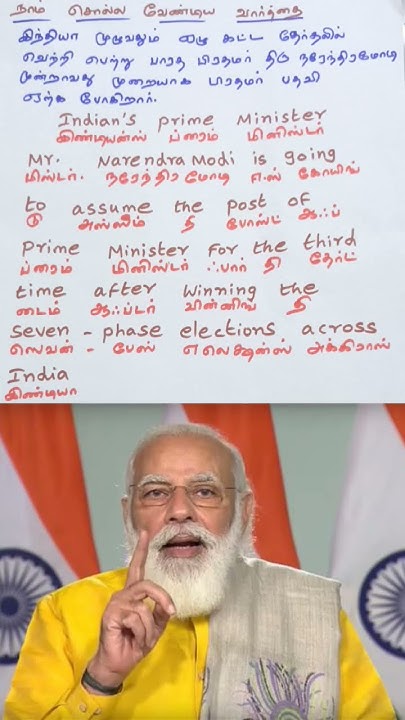 நாம் சொல்ல வேண்டிய வார்த்தை
இந்தியா முழுவதும் ஏழு கட்ட தேர்தலில்
வெற்றி பெற்று பாரத பிரதமர் திரு நரேந்திரமோடி
மூன்றாவது முறையாக பிரதமர் பதவி
ஏற்க போகிறார்.
Indian's prime Minister
இண்டியன்ஸ் ப்ரைம் மினிஸ்டர்
Mr. Narendra Modi is going
மிஸ்டர். நரேந்திர மோடி இஸ் கோயிங்
to assume the post of
டு அஸ்ஸூம் தி போஸ்ட் ஆஃப்
Prime Minister For the third
ப்ரைம் மினிஸ்டர் ஃபார் தி தேர்ட்
time after winning the
டைம் ஆஃப்டர் வின்னிங் தி
seven - phase elections across
ஸெவன் - பேஸ் எலெக்ஷன்ஸ் அக்கிராஸ்
India
இண்டியா